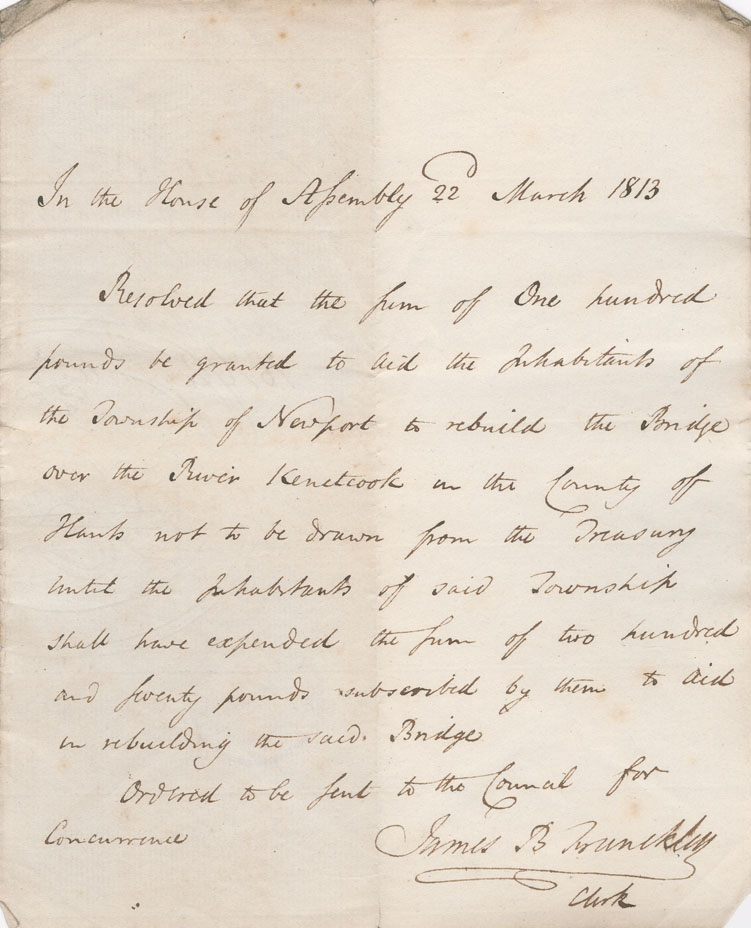 In the House of Assembly 22d March 1813
Resolved that the sum of One hundred
pounds be granted to aid the Inhabitants of
the Township of Newport to rebuild the Bridge
over the River Kenetcook in the County of
Hants not to be drawn from the Treasury
until the Inhabitants of said Township
shall have expended the sum of two hundred
and seventy pounds subscribed by them to aid
in rebuilding the said Bridge
Ordered to be sent to the Council for
Concurrence
James B Franckley
Clerk